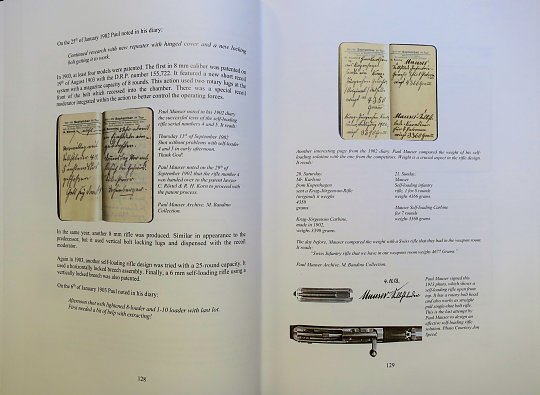 On the 25th of January 1902 Paul noted in his diary:
Continued research with new repeater with hinged cover and a new locking
bolt getting it to work.
In 1903, at least four models were patented. The first in 8 mm caliber was patented on
19th of August 1903 with the D.R.P. number 155,722. It featured a new short recoil
system with a magazine capacity of 8 rounds. This action used two rotary lugs at the
front of the bolt which recessed into the chamber. There was a special recoil
moderator integrated within the action to better control the operating forces.
Paul Mauser noted in his 1902 diary
the successful tests of the self-loading
rifle serial numbers 4 and 3. It reads:
Thursday 11th of September 1902
Shot without problems with self-loader
4 and 3 in early afternoon.
Thank God!
Paul Mauser noted on the 29th of
September 1902 that the rifle number 4
was handed over to the patent lawyer
C. Röstel & R. H. Korn to proceed with
the patent process.
Paul Mauser Archive. M. Baudino
Collection.
In the same year, another 8 mm rifle was produced. Similar in appearance to the
predecessor, but it used vertical bolt locking lugs and dispensed with the recoil
moderator.
Again in 1903, another self-loading rifle design was tried with a 25-round capacity. It
used a horizontally locked breech assembly. Finally, a 6 mm self-loading rifle using a
vertically locked breech was also patented.
On the 6th of January 1905 Paul noted in his diary:
Afternoon shot with lightened 8-loader and 1-10 loader with last lot.
First needed a bit of help with extracting!
128
Another interesting page from the 1902 diary. Paul Mauser compared the weight of his self-
loading solution with the one from the competitors. Weight is a crucial aspect in the rifle design.
It reads:
20. Saturday.
Mr. Karlson
from Kopenhagen
sent a Krag-Jörgensen-Rifle
(original) it weighs
4350
grams
Krag-Jörgensen Carbine,
made in 1902.
weighs 3390 grams.
21. Sunday.
Mauser
Self-loading infantry
rifle, 1 for 8 rounds
weighs 4366 grams
Mauser Self-loading Carbine
for 7 rounds
weighs 3360 grams.
The day before, Mauser compared the weight with a Swiss rifle that they had in the weapon room.
It reads:
"Swiss Infantry rifle that we have in our weapon room weighs 4677 Grams."
Paul Mauser Archive. M. Baudino Collection.
Paul Mauser signed this
1913 photo, which shows a
self-loading rifle open from
top. It has a rotary bolt head
and also works as straight
pull single-shot bolt rifle.
This is the last attempt by
Paul Mauser to design an
effective self-loading rifle
solution. Photo Courtesy Jon
Speed.
129